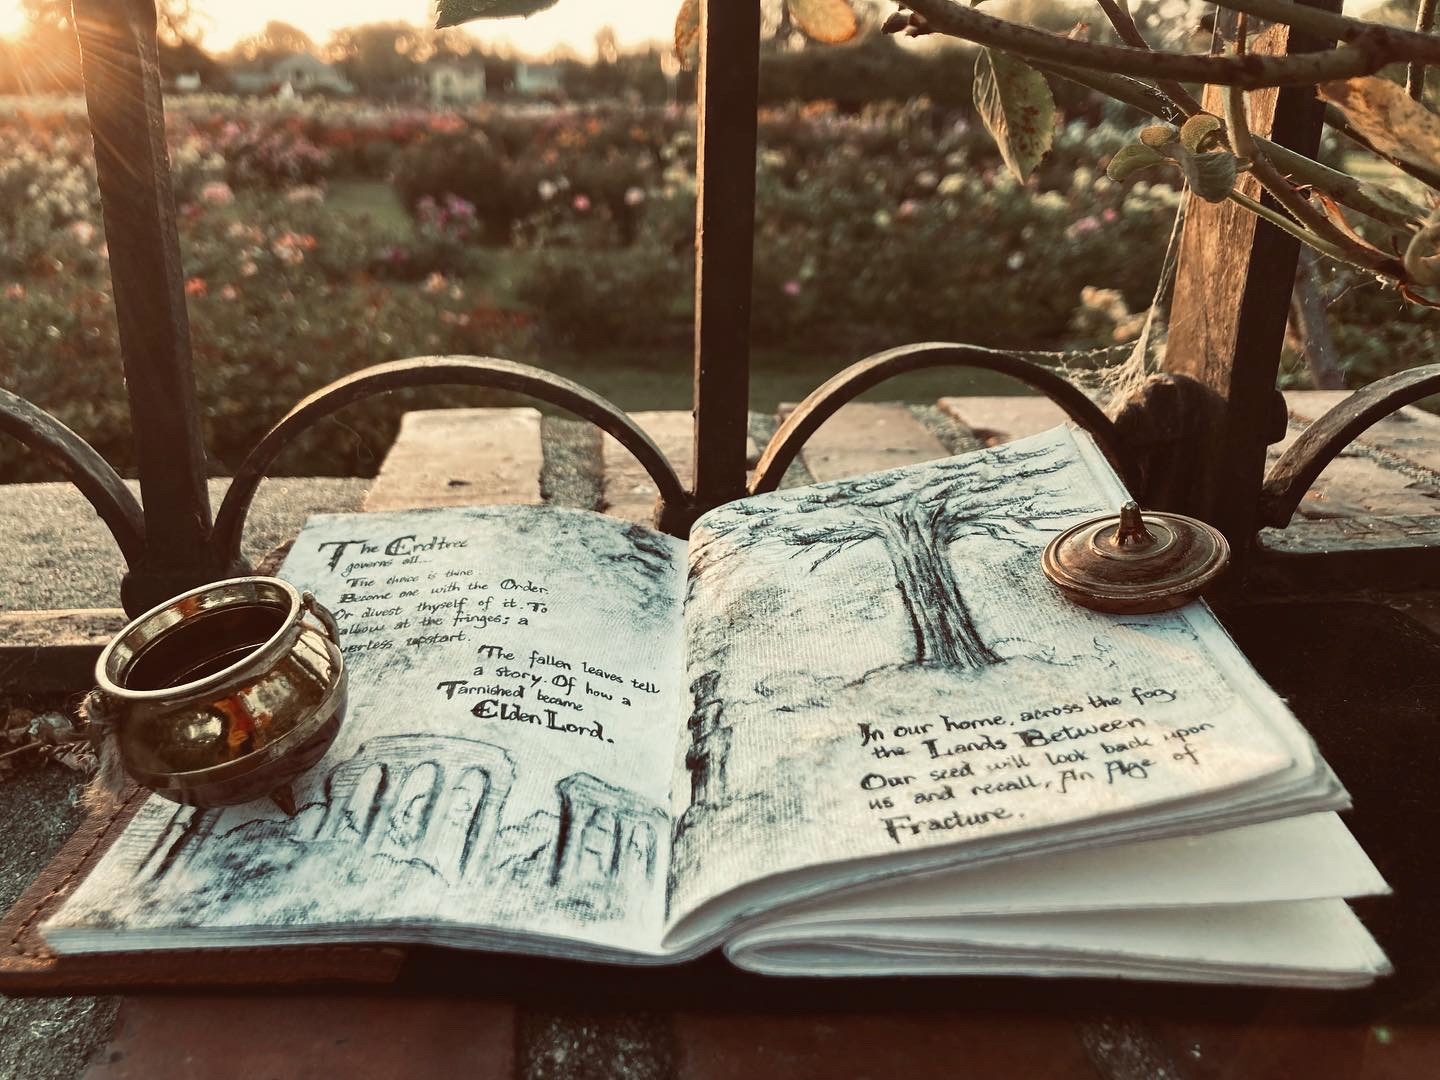 The Erdtree
governs all...
The choice is thine.
Become one with the Order.
Or divest thyself of it. To
wallow at the fringes; a
powerless upstart.
The fallen leaves tell
a story. Of how a
Tarnished became
Elden Lord.
In our home, across the fog,
the Lands Between
Our seed will look back upon
us and recall, An Age of
Fracture.